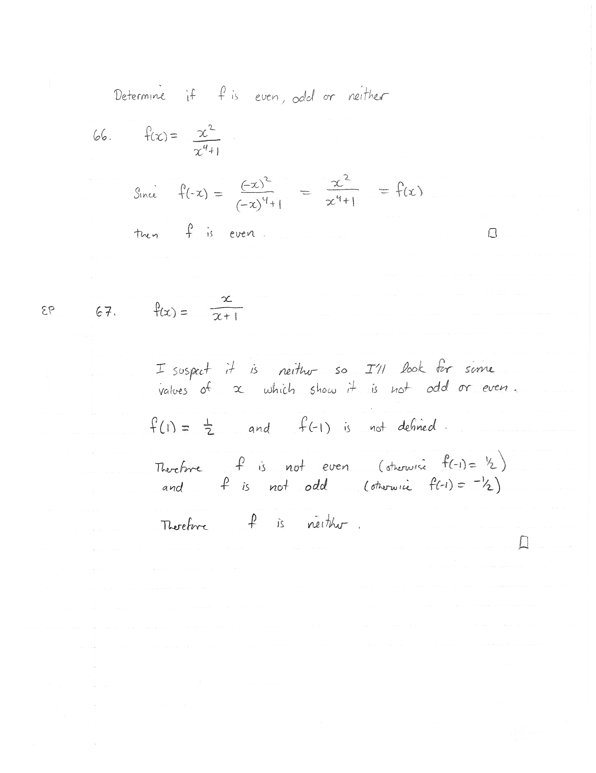 Determine if f is even, odd or neither
66. f(x) = x²/(x⁴+1)
Since f(-x) = (-x)²/((-x)⁴+1) = x²/(x⁴+1) = f(x)
then f is even. □
EP 67. f(x) = x/(x+1)
I suspect it is neither so I'll look for some
values of x which show it is not odd or even.
f(1) = 1/2 and f(-1) is not defined.
Therefore f is not even (otherwise f(-1) = 1/2)
and f is not odd (otherwise f(-1) = -1/2)
Therefore f is neither.
□